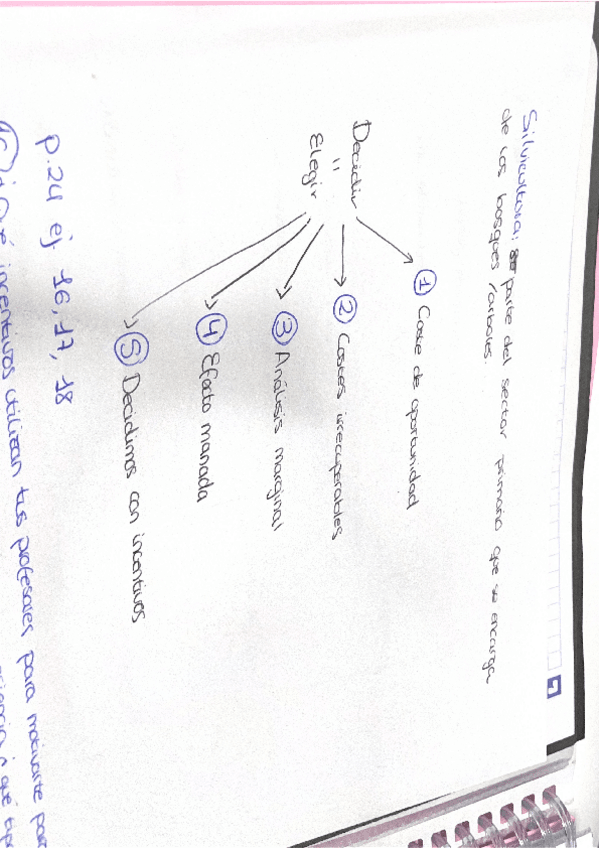 Silvicultura: parte del sector primario que se encarga
de los bosques / árboles.
Decidir
=
Elegir
1 Coste de oportunidad
2 Costes irrecuperables
3 Análisis marginal
4 Efecto manada
5 Decidimos con incentivos
p.24 ej 16, 17, 18
16 ¿Qué incentivos utilizan tus profesores para motivarte para
qué